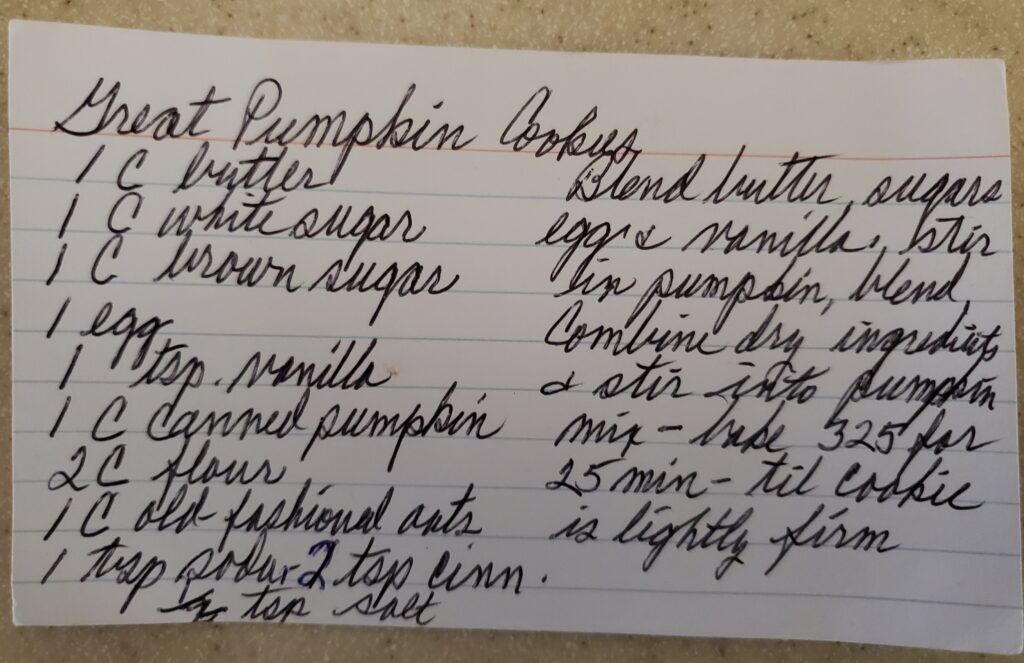 Great Pumpkin Cookies
1 C butter
1 C white sugar
1 C brown sugar
1 egg
1 tsp. vanilla
1 C canned pumpkin
2 C flour
1 C old-fashional oats
1 tsp soda - 2 tsp cinn.
tsp salt
Blend butter, sugars
egg & vanilla, stir
in pumpkin, blend,
Combine dry ingredients
& stir into pumpkin
mix - bake 325 for
25 min - til cookie
is lightly firm